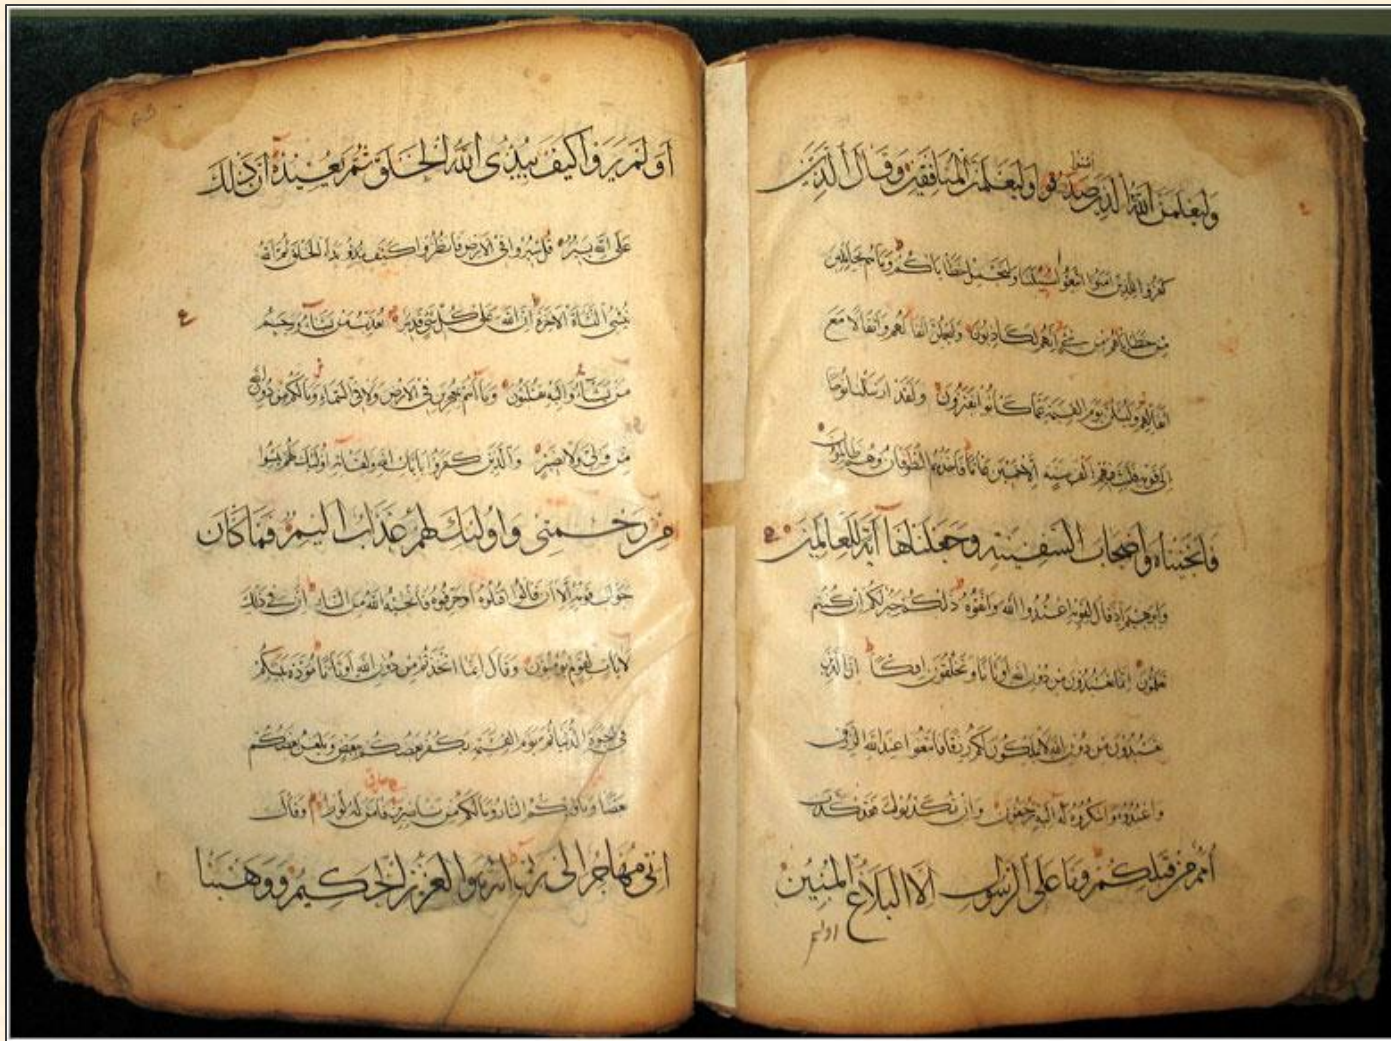 امنوا
وليعلمن الله الذين صدقوا وليعلمن المنافقين وقال الذين
كفروا للذين امنوا اتبعوا سبيلنا ولنحمل خطاياكم وما هم بحاملين
من خطاياهم من شئ انهم لكاذبون وليحملن اثقالهم واثقالا مع
اثقالهم وليسئلن يوم القيمة عما كانوا يفترون ولقد ارسلنا نوحا
الى قومه فلبث فيهم الف سنة الا خمسين عاما فاخذهم الطوفان وهم ظالمون
فانجيناه واصحاب السفينة وجعلناها آية للعالمين
وابرهيم اذ قال لقومه اعبدوا الله واتقوه ذلكم خير لكم ان كنتم
تعلمون انما تعبدون من دون الله اوثانا وتخلقون افكا ان الذين
تعبدون من دون الله لا يملكون لكم رزقا فابتغوا عند الله الرزق
واعبدوه واشكروا له اليه ترجعون وان تكذبوا فقد كذب
امم من قبلكم وما على الرسول الا البلاغ المبين
اولم
اولم يروا كيف يبدئ الله الخلق ثم يعيده ان ذلك
على الله يسير قل سيروا فى الارض فانظروا كيف بدء الخلق ثم الله
ينشئ النشأة الاخرة ان الله على كل شئ قدير يعذب من يشاء ويرحم
من يشاء واليه تقلبون وما انتم بمعجزين فى الارض ولا فى السماء وما لكم من دون الله
من ولى ولا نصير والذين كفروا بايات الله ولقائه اولئك يئسوا
من رحمتى واولئك لهم عذاب اليم فما كان
جواب قومه الا ان قالوا اقتلوه او حرقوه فانجيه الله من النار ان فى ذلك
لايات لقوم يؤمنون وقال انما اتخذتم من دون الله اوثانا مودة بينكم
فى الحيوة الدنيا ثم يوم القيمة يكفر بعضكم ببعض ويلعن بعضكم
بعضا وماويكم النار وما لكم من ناصرين فامن له لوط وقال
انى مهاجر الى ربى انه هو العزيز الحكيم ووهبنا